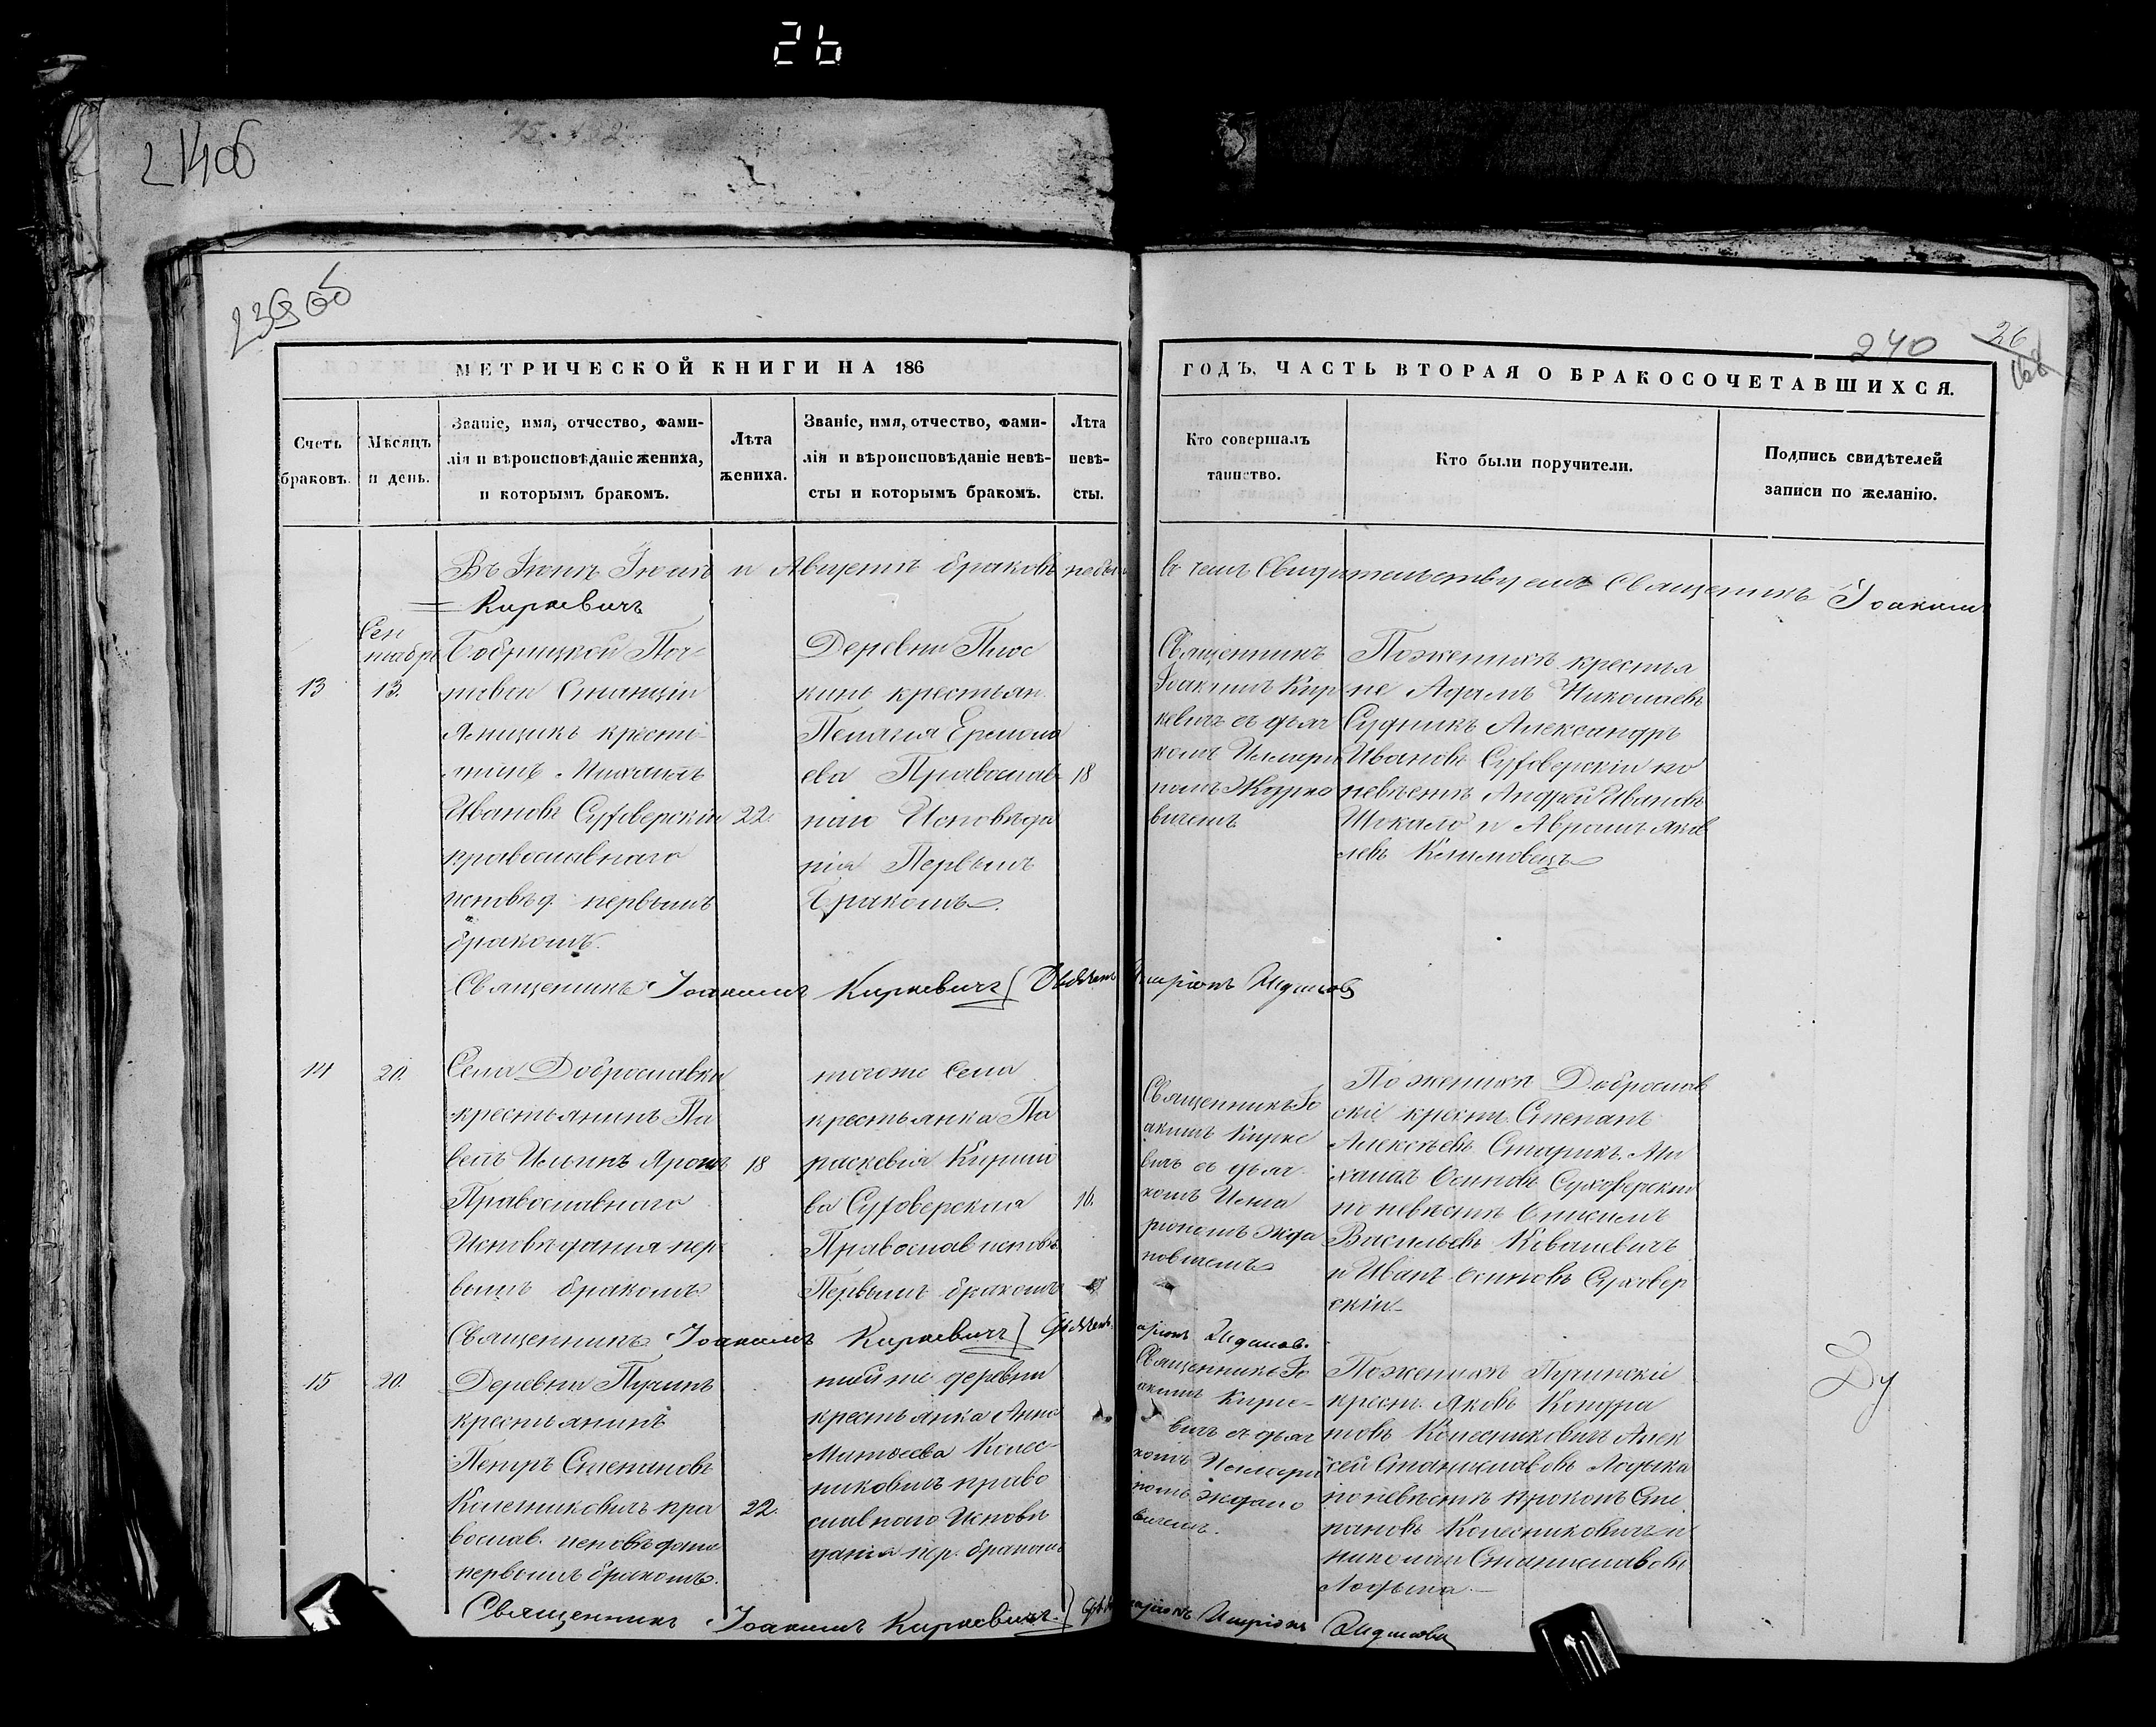 26
214об
239об
240
26
168
МЕТРИЧЕСКОЙ КНИГИ НА 186
ГОДЪ, ЧАСТЬ ВТОРАЯ О БРАКОСОЧЕТАВШИХСЯ.
Счетъ браковъ.
Мѣсяцъ и день.
Званіе, имя, отчество, фами-
лія и вѣроисповѣданіе жениха,
и которымъ бракомъ.
Лѣта
жениха.
Званіе, имя, отчество, фами-
лія и вѣроисповѣданіе невѣ-
сты и которымъ бракомъ.
Лѣта
невѣ-
сты.
Кто совершалъ
таинство.
Кто были поручители.
Подпись свидѣтелей
записи по желанію.
Въ Іюнѣ Іюлѣ и Августѣ браковъ небыло
в чемъ Свидѣтельствуемъ Священникъ Іоакимъ
Киркевичъ
13
Сен
тябрь
13.
Бобрицкой Поч-
товой Станціи
Ямщикъ крестья-
нинъ Михаилъ
Ивановъ Суховерскій
православнаго
исповѣд. первымъ
бракомъ.
22.
Деревни Плос
кинь крестьян.
Пелагія Ермола
ева Православ
наго Исповѣда
нія Первымъ
бракомъ.
18
Священникъ
Іоакимъ Кир
кевичъ съ дьяч
комъ Иллари
ономъ Ждано
вичемъ
По женихѣ крестья
не Адамъ Николаевъ
Судникъ Александръ
Ивановъ Суховерскій по
невѣстѣ Андрей Ивановъ
Шокало и Аврамъ Яков
левъ
Священникъ Іоакимъ Киркевичъ
14
20.
Села Доброславки
крестьянинъ Па
велъ Ильинъ Ярош
Православнаго
Исповѣданія пер
вымъ бракомъ
18
тогоже Села
крестьянка Па
раскевія Кирил
ва Суховерская
Православ исповѣ
Первымъ бракомъ
16.
Священникъ Іо
акимъ Кирке
вичъ съ дьяч
комъ Илла
ріономъ Жда
новичемъ
По женихѣ Доброслав
скіе крест. Степанъ
Алексѣевъ Старикъ. Ми
хаилъ Осиповъ Суховерскій
по невѣстѣ Онисимъ
Васильевъ Ковалевичъ
и Иванъ Осиповъ Суховер
скій
Священникъ Іоакимъ Киркевичъ
15
20.
Деревни Пучинъ
крестьянинъ
Петръ Степановъ
Колесниковичъ пра
вослав. исповѣдані
первымъ бракомъ.
22.
тойже деревни
крестьянка Анна
Матѳеева Колес-
никовичъ право
славного Исповѣ
данія пер. бракомъ
Священникъ Іо
акимъ Кирке-
вичъ съ дьяч
комъ Иллари
ономъ Ждано
вичемъ.
По женихѣ Пучинскіе
крест. Яковъ Кондра
товъ Колесниковичъ Алек
сей Станиславовъ Лодыка
по невѣстѣ Прокопъ Сте
пановъ Колесниковичъ и
Николай Станиславовъ
Священникъ Іоакимъ Киркевичъ.